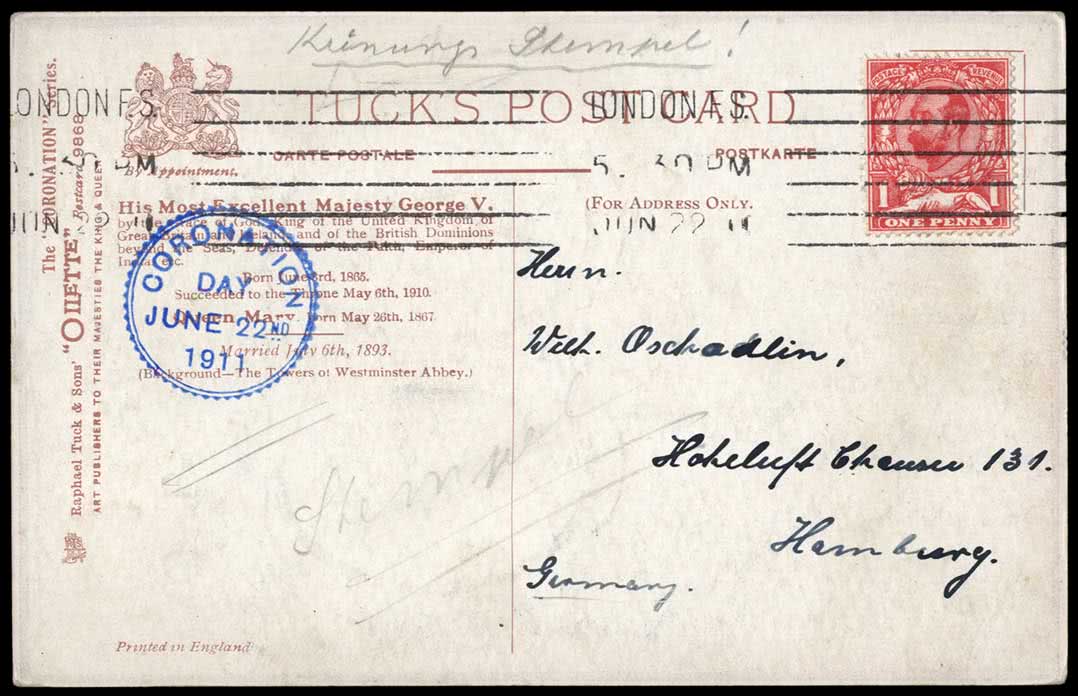 Krönungs Stempel!
The "CORONATION" Series.
Raphael Tuck & Sons' "OILETTE" Postcard 9868
ART PUBLISHERS TO THEIR MAJESTIES THE KING & QUEEN
LONDON F.S.
5. 30 PM
JUN 22 11
LONDON F.S.
5. 30 PM
JUN 22 11
By Appointment.
TUCK'S POST CARD
CARTE POSTALE
POSTKARTE
POSTAGE
REVENUE
1
1
ONE PENNY
His Most Excellent Majesty George V.
by the Grace of God, King of the United Kingdom of
Great Britain and Ireland and of the British Dominions
beyond the Seas, Defender of the Faith, Emperor of
India, etc.
Born June 3rd, 1865.
Succeeded to the Throne May 6th, 1910.
Queen Mary. Born May 26th, 1867
Married July 6th, 1893.
(Background—The Towers of Westminster Abbey.)
CORONATION
DAY
JUNE 22ND
1911
Stempel
(FOR ADDRESS ONLY.
Herrn.
Wilh. Oschadlin,
Hoheluft Chaussee 131.
Hamburg.
Germany.
Printed in England